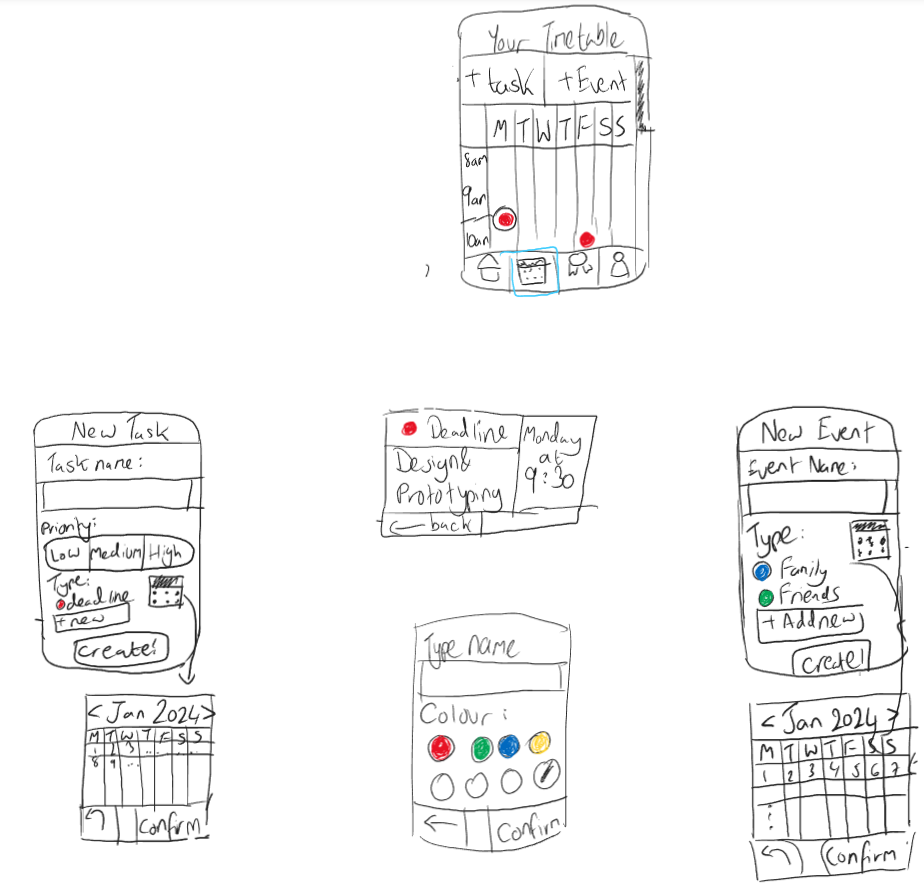 Your Timetable
+ task +Event
M T W T F S S
8am
9am
10am
New Task
Task name:
Priority:
Low Medium High
Type:
deadline
+ new
Create!
< Jan 2024 >
M T W T F S S
1 2 3 ... ... ...
8 9 ...
Confirm
Deadline
Design &
Prototyping
Monday
at
9:30
← back
Type Name
Colour:
← Confirm
New Event
Event Name:
Type:
Family
Friends
+ Add new
Create!
< Jan 2024 >
M T W T F S S
1 2 3 4 5 6 7
Confirm